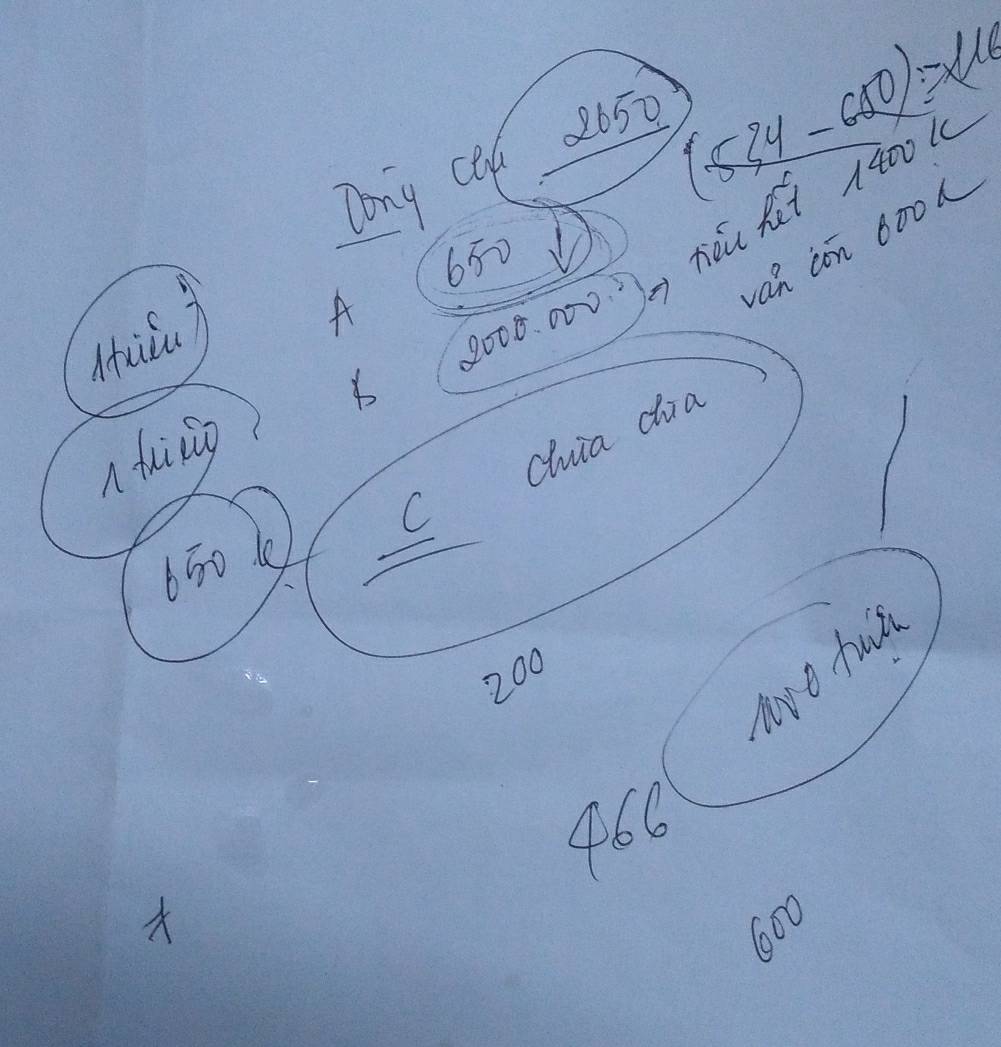 2650
(524 - 650) =
650
tiêu hết 1400 k
A
2000.000
vẫn còn 600 k
1 triệu
B
1 triệu
C chưa chia
650 k
200
triệu
466
600